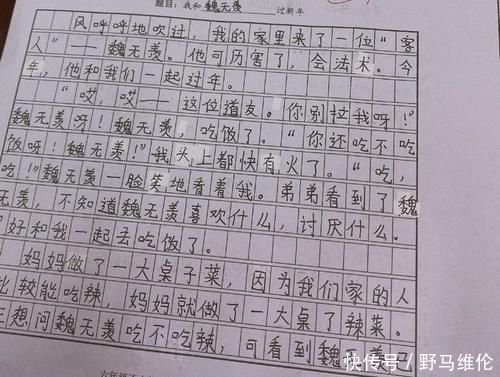 题目：我和魏无羡过新年
风呼呼地吹过，我的家里来了一位“客
人”——魏无羡。他可厉害了，会法术。今
年，他和我们一起过年。
“哎，哎——这位道友。你别拉我呀！”
魏无羡呀！魏无羡，吃饭了。“你还吃不吃
饭呀！魏无羡！”我头上都快有火了。“吃，
吃！”魏无羡一脸笑地看着我。弟弟看到了魏
无羡，不知道魏无羡喜欢什么，讨厌什么。
好和我一起去吃饭了。
妈妈做了一大桌子菜，因为我们家的人
比较能吃辣，妈妈就做了一大桌了辣菜。
想问魏无羡吃不吃辣，可看到魏无羡
快传号 / 野马维伦